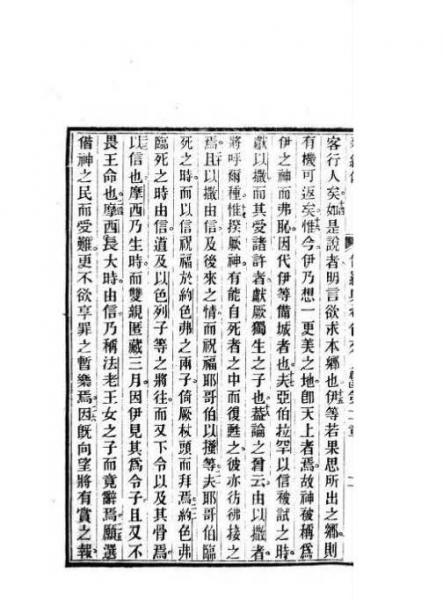 客行人矣如是說者明言欲求本鄉也伊等若果思所出之鄉則
有機可返矣惟今伊乃想一更美之地卽天上者焉故神被稱爲
伊之神而弗恥因代伊等備城者也夫亞伯拉罕以信被試之時
獻以撒而其愛諸許者獻厥獨生之子也蓋論之曾云由以撒者
將呼爾種惟撰厥神有能自死者之中而復甦之彼亦彷彿接之
焉且以撒由信及後來之情而祝福耶哥伯以撒等夫耶哥伯臨
死之時而以信祝福於約色弗之兩子倚厥杖頭而拜焉約色弗
臨死之時由信道及以色列子等之將往而又下令以及其骨焉
以信也摩西乃生時而雙親匿藏三月因伊見其爲令子且又不
畏王命也摩西長大時由信乃稱法老王女之子而竟辭焉願選
偕神之民而受難更不欲享罪之暫樂焉因旣向望將有賞之報